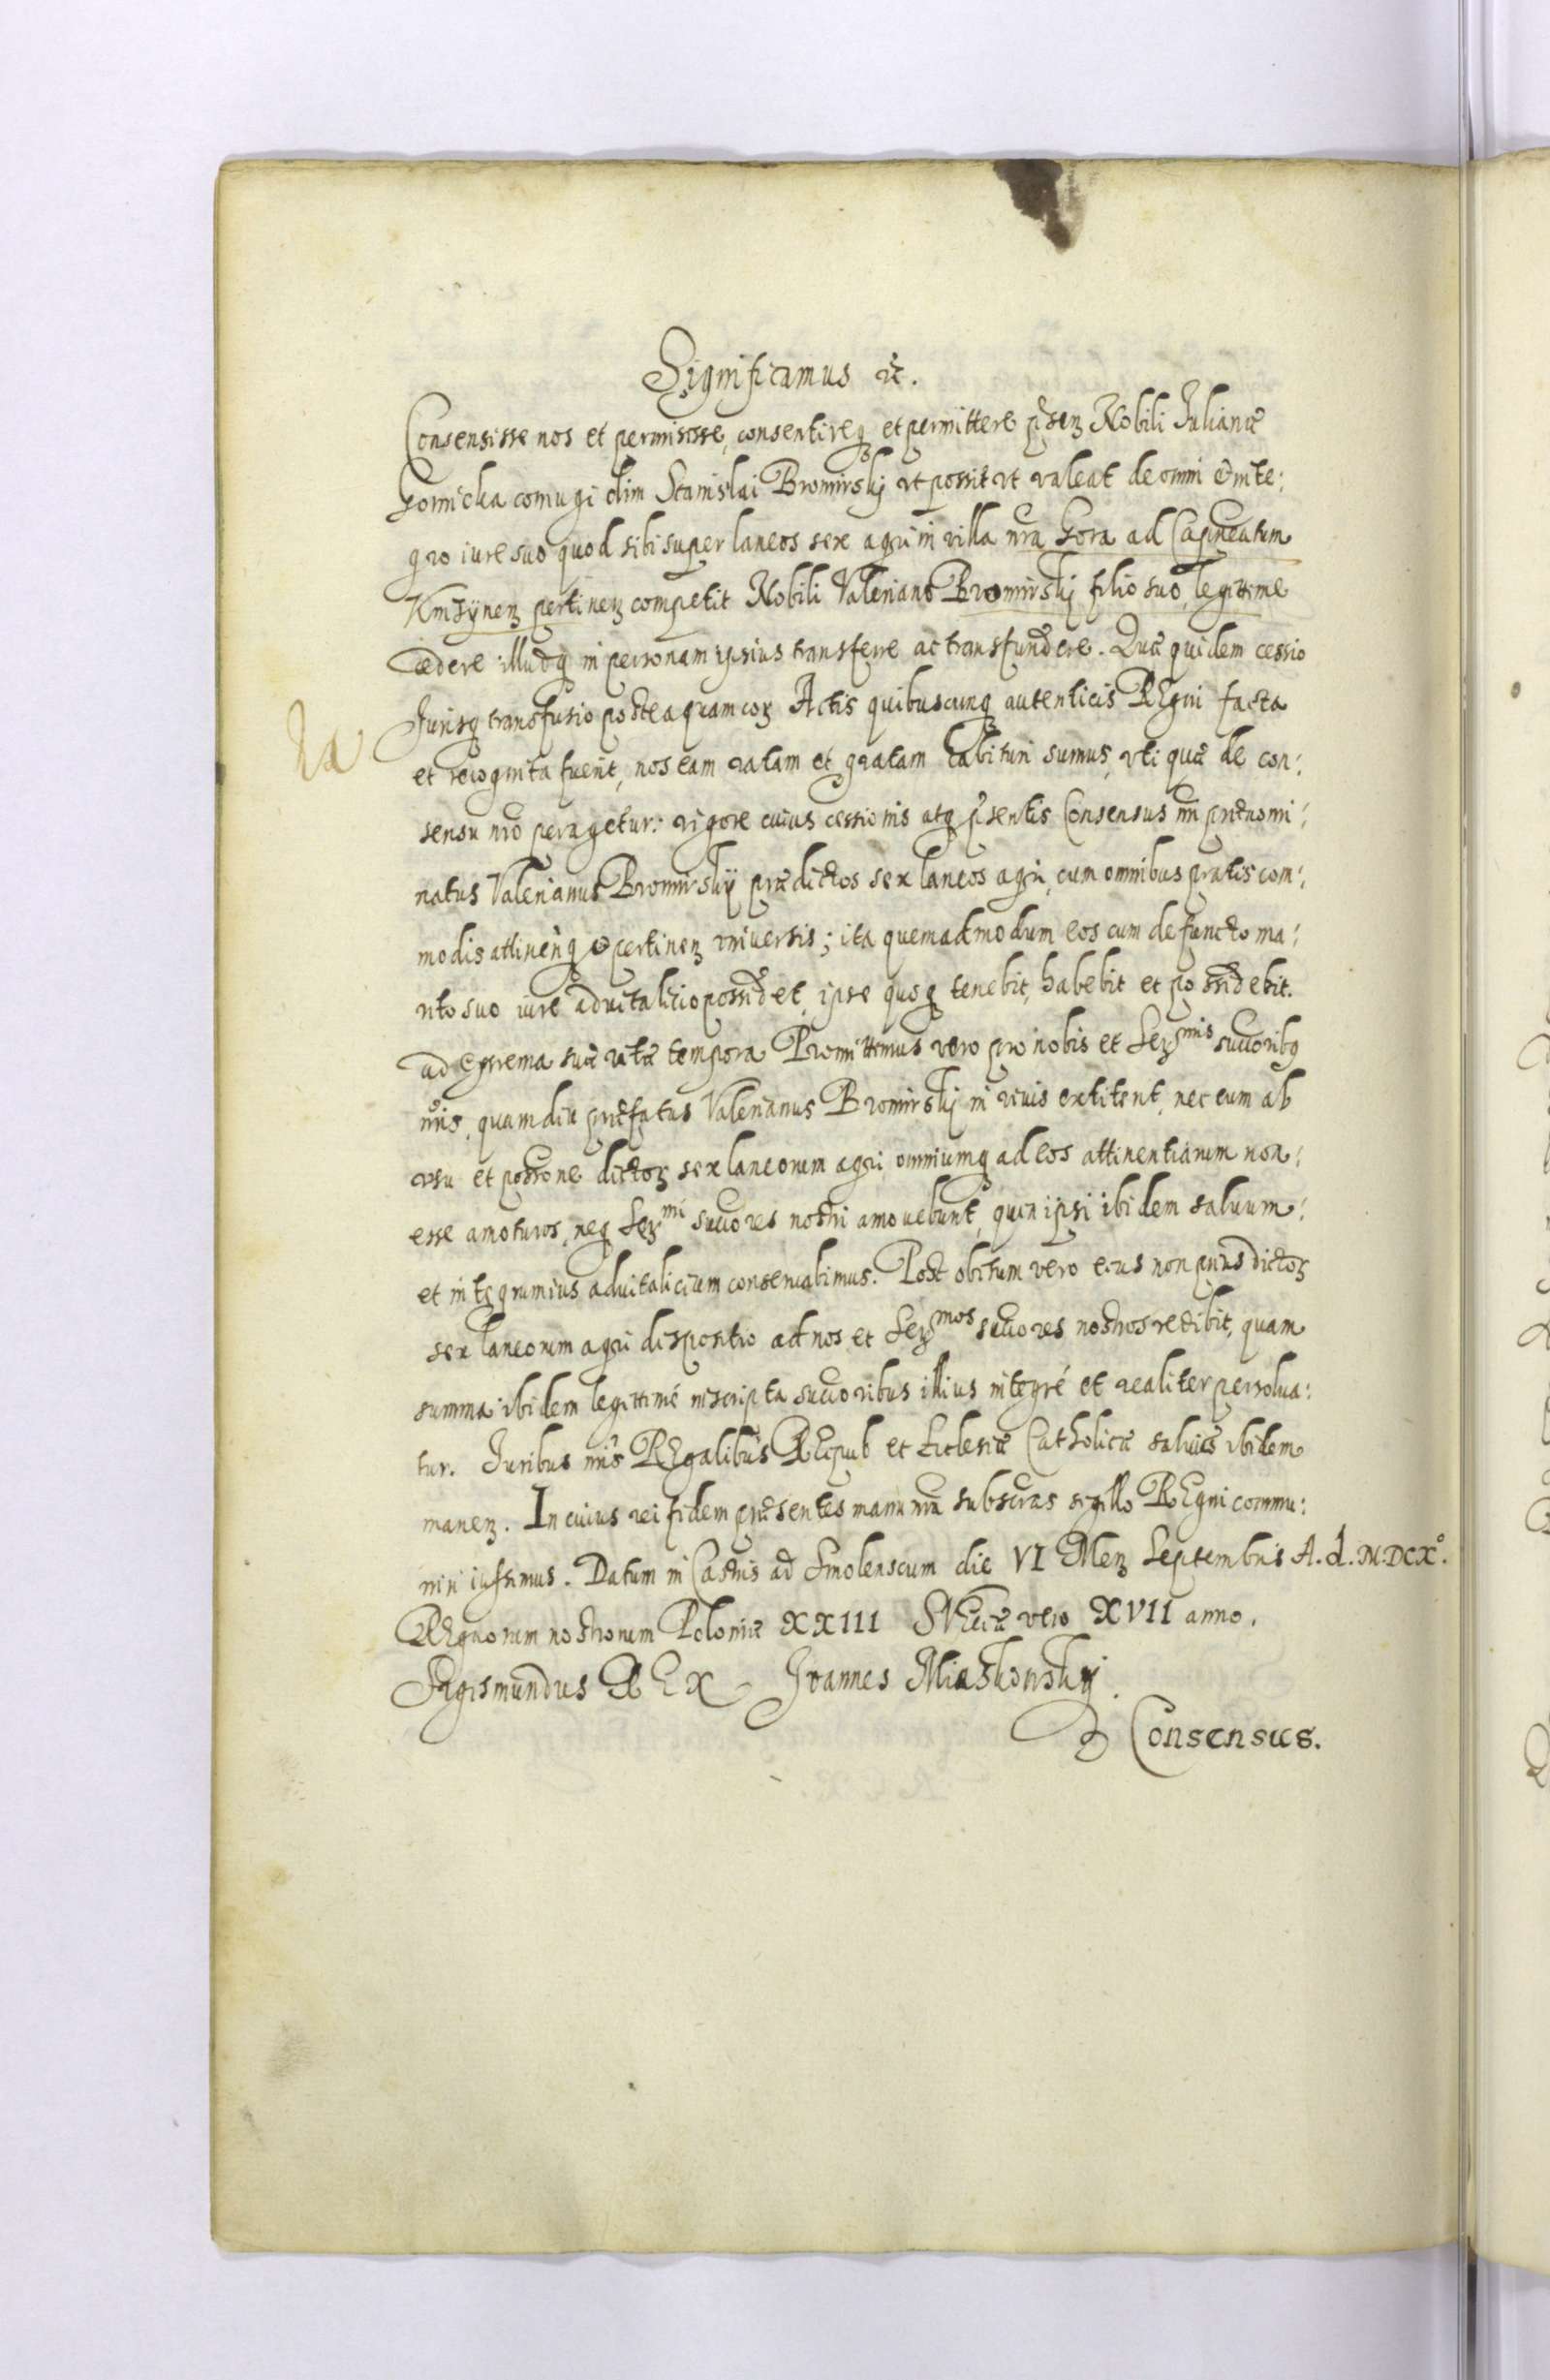 Significamus etc.
Consensisse nos et permisisse, consentireq et permittere psen Nobili Julianæ
Gornicka coniugi olim Stanislai Bromirskj ut possit ut valeat de omni et inte:
gro iure suo quod sibi super laneos sex agri in villa nra Gora ad Capneatum
pertinen competit Nobili Valeriano Bromirskj filio suo, legitime
cædere illudq in personam ipsius transferre ac transfundere. Quæ quidem cessio
Jurisq transfusio posteaquam cor Actis quibuscunq autenticis REgni facta
et recognita fuerit, nos eam ratam et gratam habituri sumus, uti quæ de con:
sensu nro peragetur: vigore cuius cessionis atq psentis Consensus nri prænomi:
natus Valerianus Bromirskÿ prædictos sex laneos agri, cum omnibus pratis com:
modis attinenq et pertinen universis; ita quemadmodum eos cum defuncto ma:
rito suo iure aduitalitio possidet, ipse quoq tenebit, habebit et possidebit.
ad extrema suæ vitæ tempora Promittimus vero pro nobis et Ser^mis succoribq
nris, quamdiu præfatus Valerianus Bromirskj in viuis extiterit, nec eum ab
usu et possione dictor sex laneorum agri omniumq ad eos attinentiarum non:
esse amoturos, neq Ser^mi succores nostri amouebunt, quin ipsi ibidem saluum:
et integrum ius aduitalicium conseruabimus. Post obitum vero eius non prius dictor
sex laneorum agri dispositio ad nos et Ser^mos succores nostros redibit, quam
summa ibidem legittimé inscripta succoribus illius integré et realiter persolua:
tur. Juribus nris REgalibus REipub et Ecclesiæ Catholicæ saluis ibidem
manen. In cuius rei fidem præsentes manu nra subscras sigillo REgni commu:
niri iussimus. Datum in Castris ad Smolenscum die VI Men Septembris A. d. MDCX°.
REgnorum nostrorum Poloniæ XXIII SVEciæ vero XVII anno.
Sigismundus REX Joannes Miaskowskÿ
Consensus.